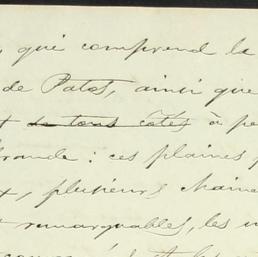 , qui comprend la
de Patos, ainsi que
t de tous côtés à pe
Grande : ces plaines p
x, plusieurs chaine
t remarquables, les u